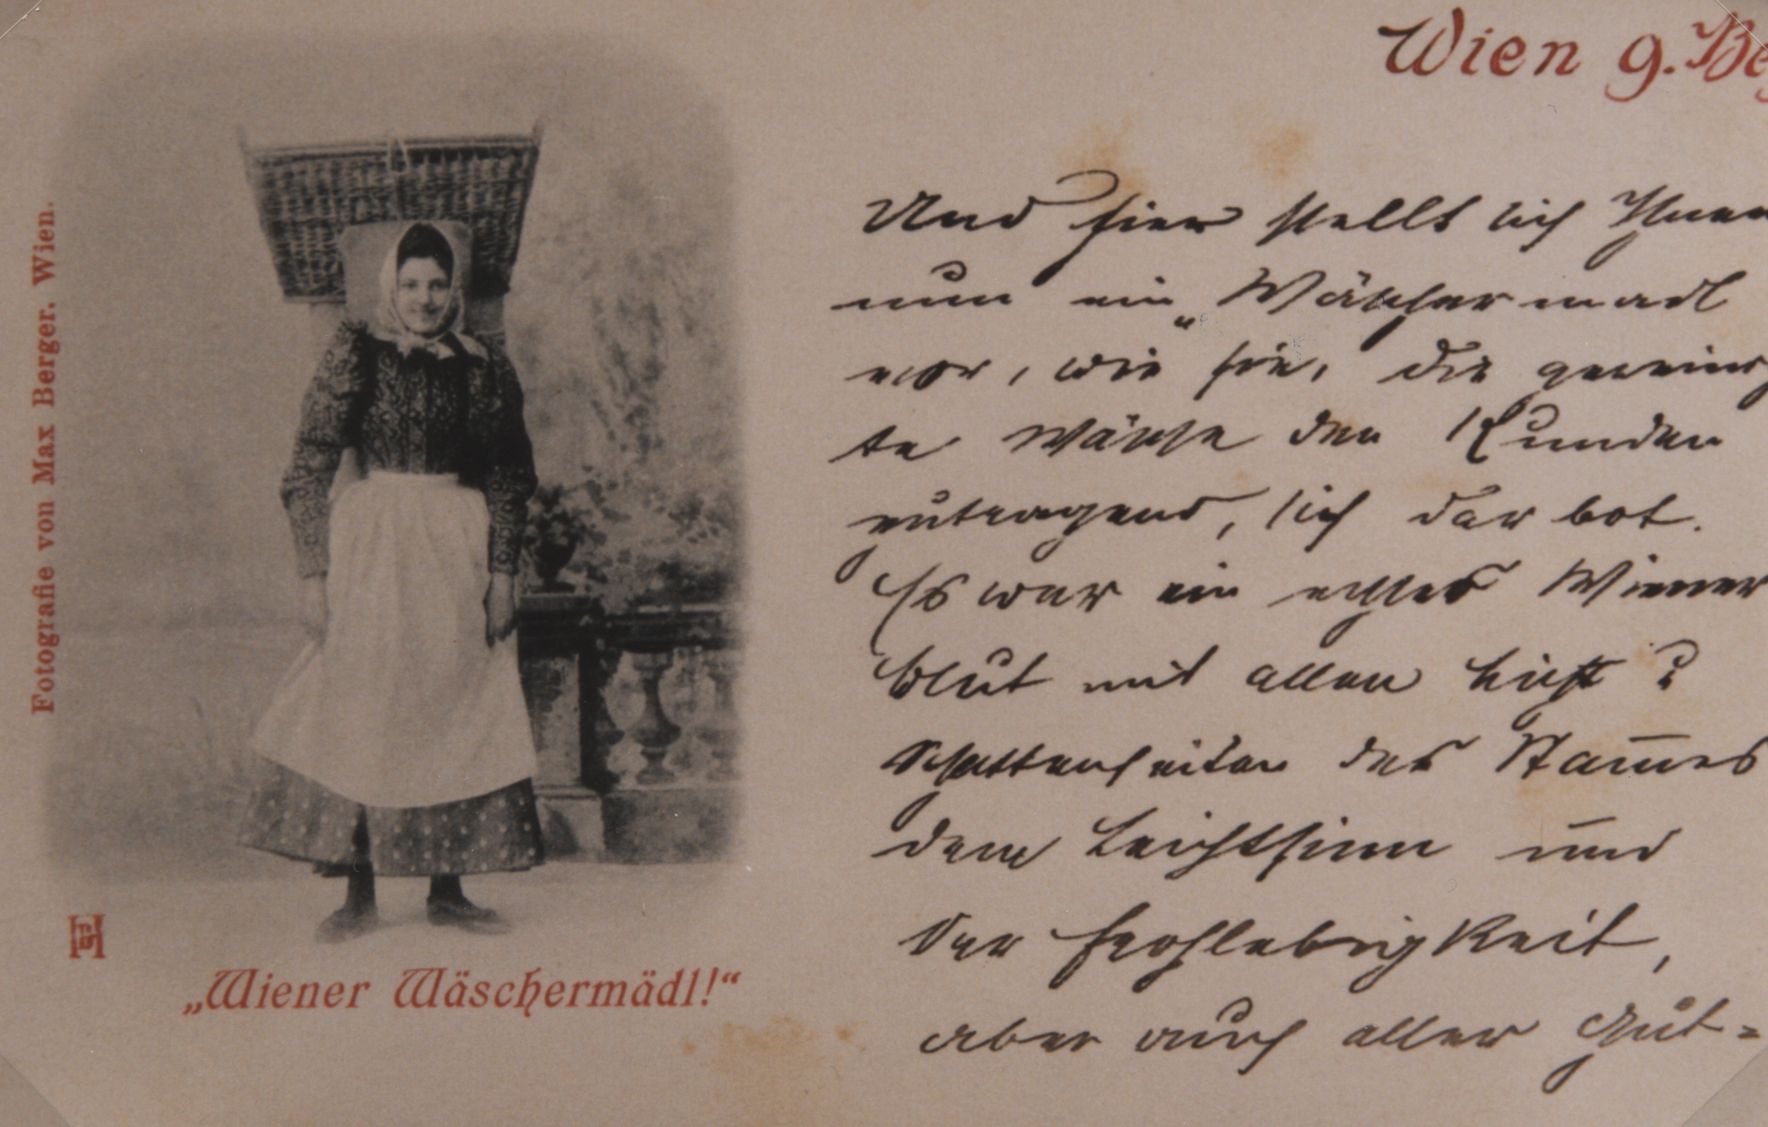 Wien 9. Be
Und hier stellt sich Ihnen
nun ein „Wäschermadl
vor, wie sie, die gereinig
te Wäsche den Kunden
zutragend, sich darbot.
Es war ein echtes Wiener
Blut mit allen Licht ?
Schattenseiten des Stam̅es
dem Leichtsinn und
der Frohlebigkeit,
aber auch aller Gut=
Fotografie von Max Berger. Wien.
„Wiener Wäschermädl!“